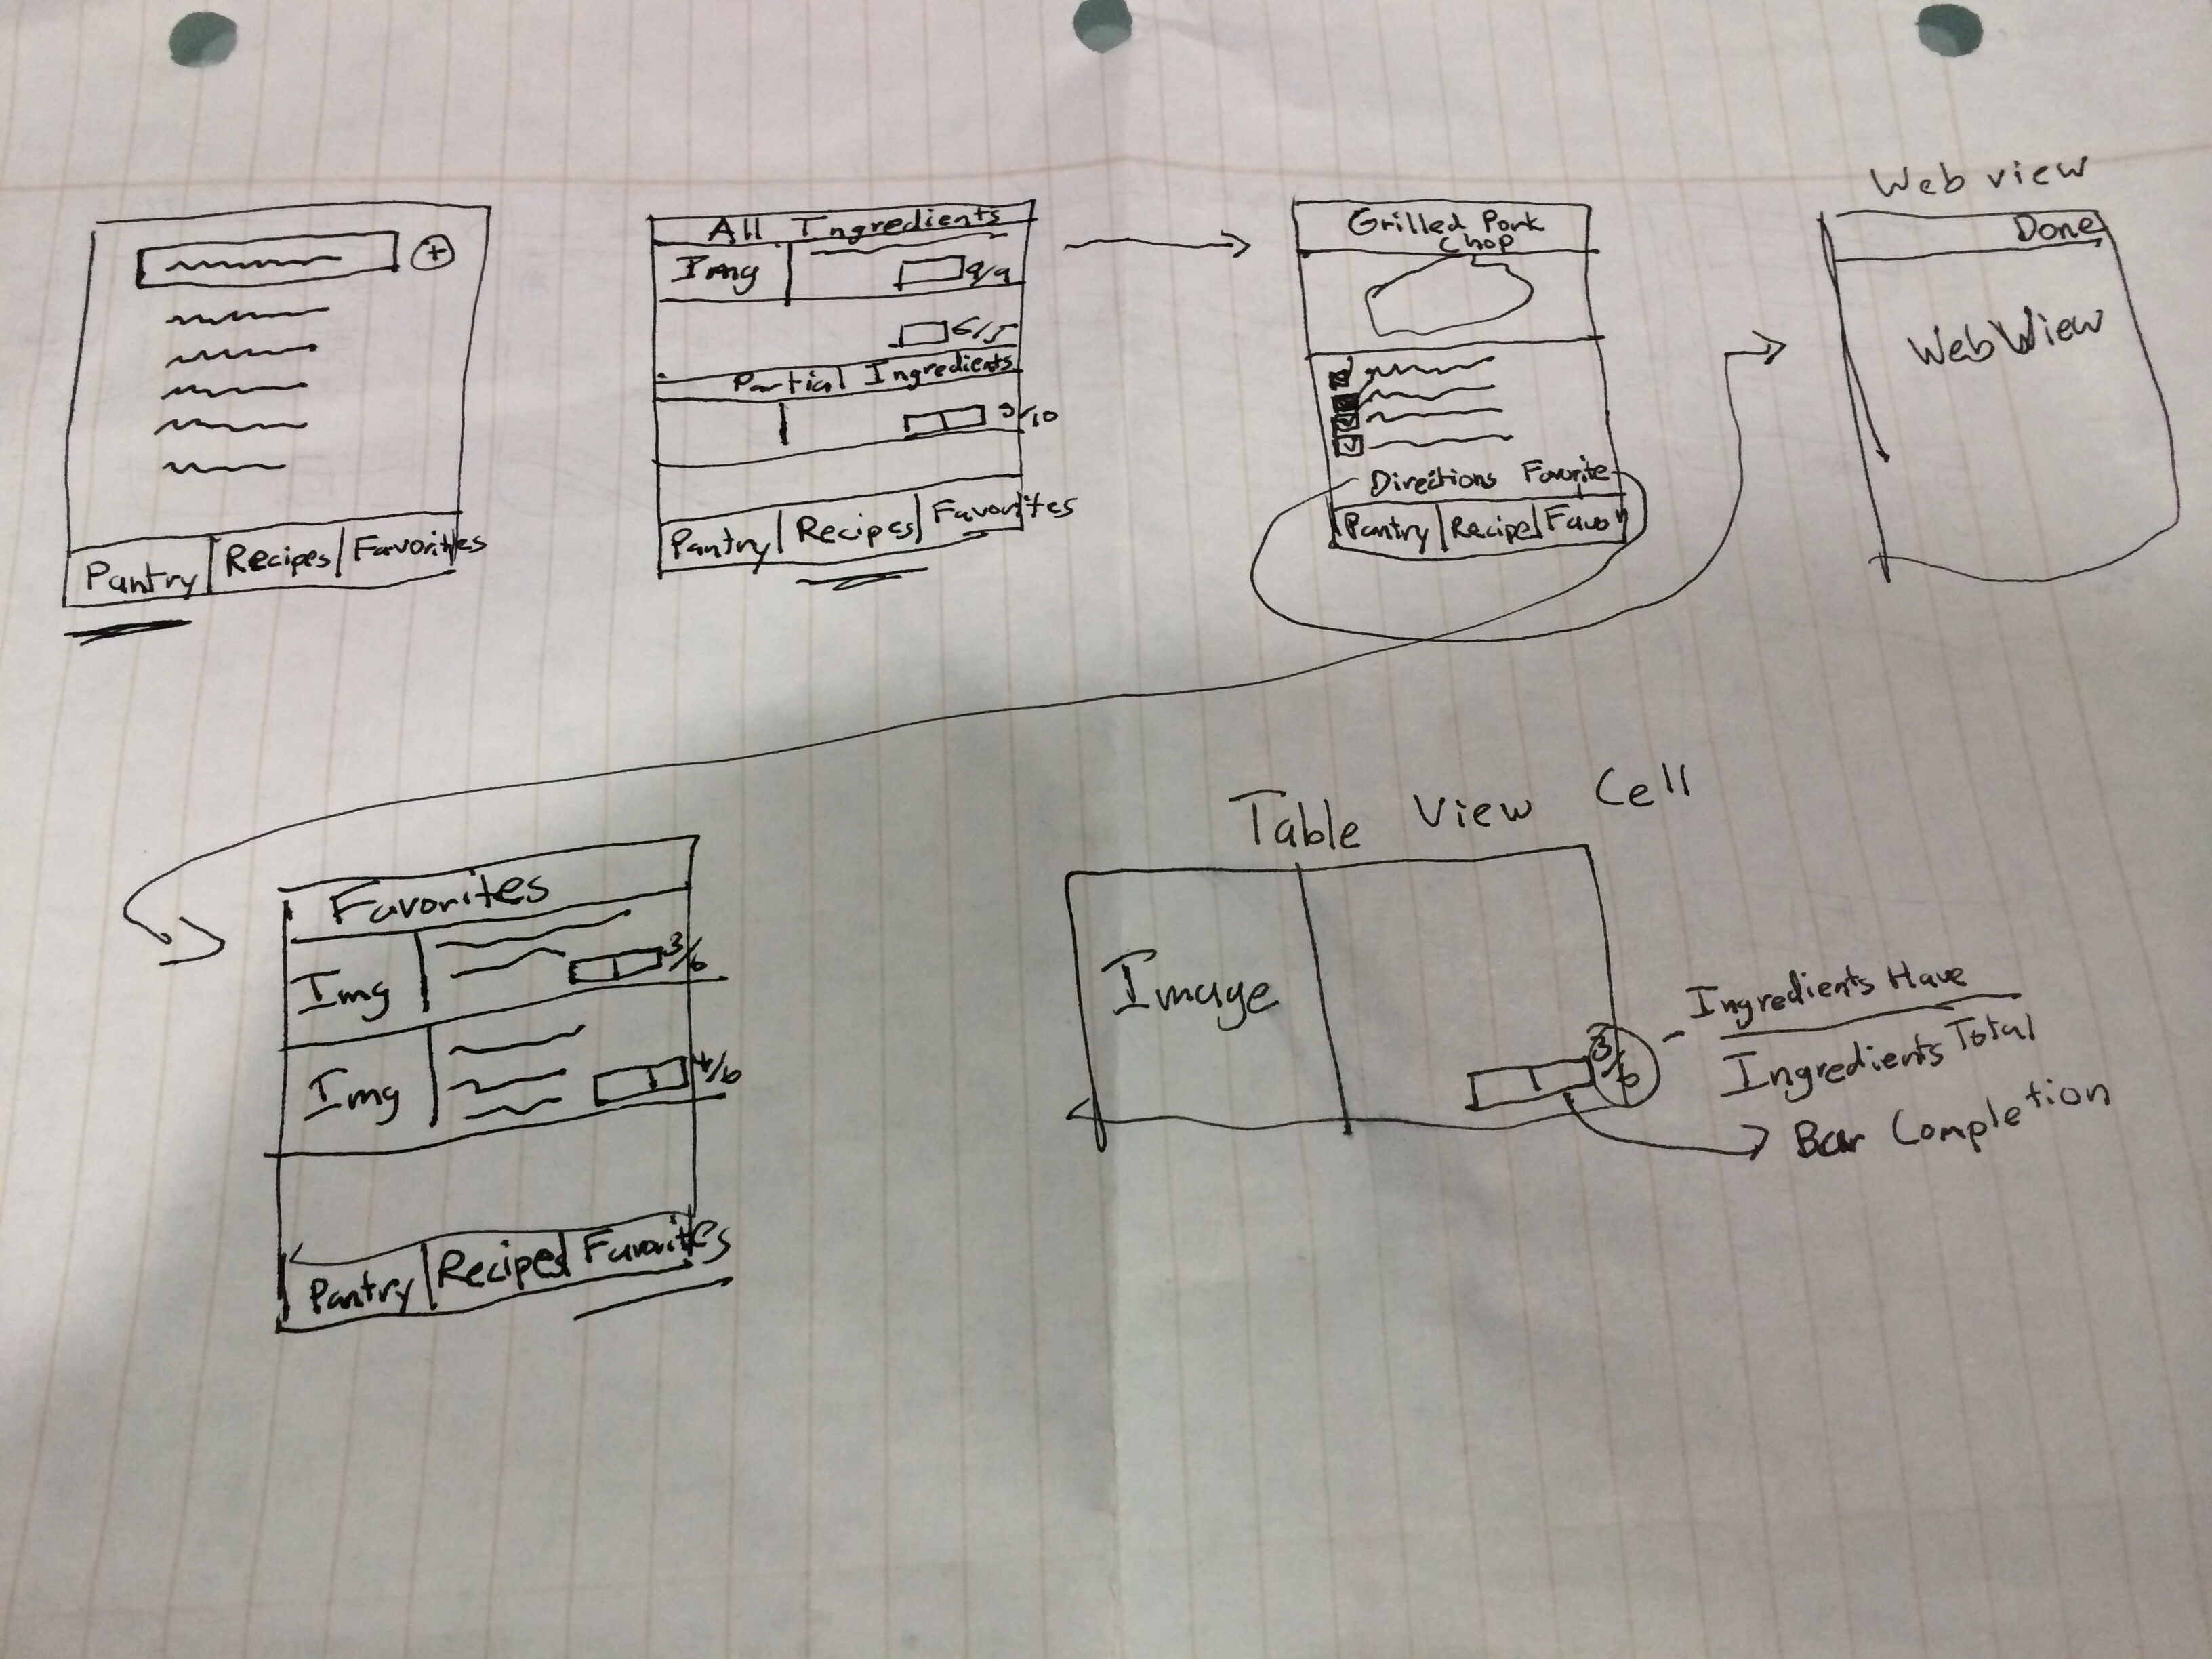 Pantry Recipes Favorites
All Ingredients
Img 9/9
Partial Ingredients
Pantry Recipes Favorites
Grilled Pork
Chop
Directions Favorite
Pantry Recipe Favo
Web view
Done
Web View
Favorites
Img 3/6
Img 4/6
Pantry Recipes Favorites
Table View Cell
Image
3/6
Ingredients Have
Ingredients Total
Bar Completion